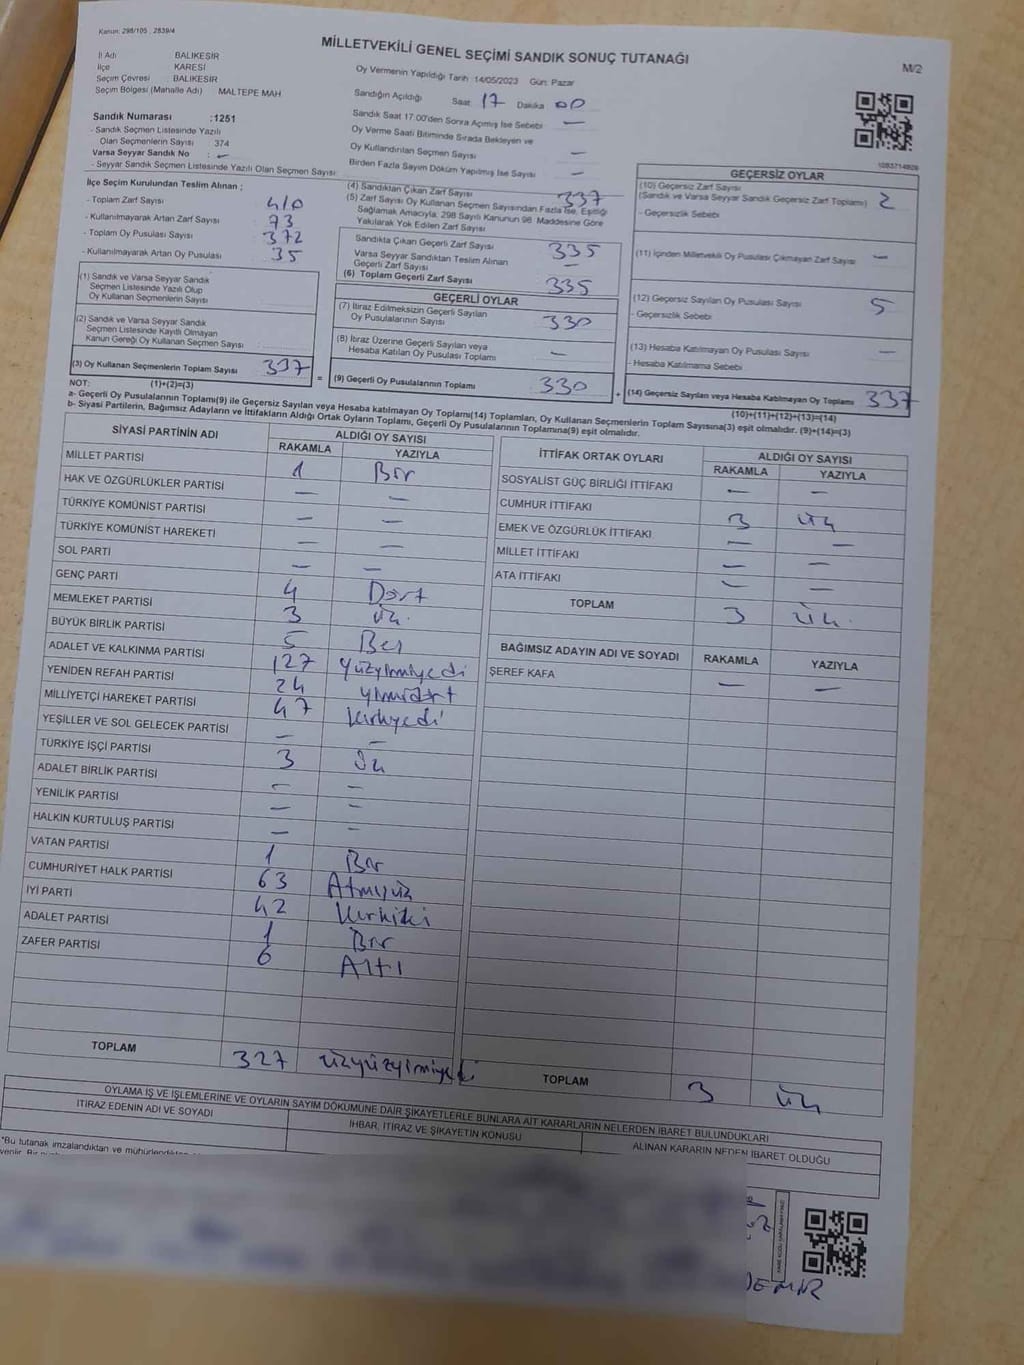 Kanun: 298/105 , 2839/4
MİLLETVEKİLİ GENEL SEÇİMİ SANDIK SONUÇ TUTANAĞI
M/2
İl Adı BALIKESİR
İlçe KARESİ
Seçim Çevresi : BALIKESİR
Seçim Bölgesi (Mahalle Adı) MALTEPE MAH
Sandık Numarası :1251
- Sandık Seçmen Listesinde Yazılı
Olan Seçmenlerin Sayısı : 374
Varsa Seyyar Sandık No : -
- Seyyar Sandık Seçmen Listesinde Yazılı Olan Seçmen Sayısı
Oy Vermenin Yapıldığı Tarih :14/05/2023 Gün: Pazar
Sandığın Açıldığı Saat: 17 Dakika 00
Sandık Saat 17:00'den Sonra Açılmış İse Sebebi -
Oy Verme Saati Bitiminde Sırada Bekleyen ve
Oy Kullandırılan Seçmen Sayısı -
Birden Fazla Sayım Döküm Yapılmış İse Sayısı -
1083714826
İlçe Seçim Kurulundan Teslim Alınan ;
- Toplam Zarf Sayısı 410
- Kullanılmayarak Artan Zarf Sayısı 73
- Toplam Oy Pusulası Sayısı 372
- Kullanılmayarak Artan Oy Pusulası 35
(1) Sandık ve Varsa Seyyar Sandık
Seçmen Listesinde Yazılı Olup
Oy Kullanan Seçmenlerin Sayısı
(2) Sandık ve Varsa Seyyar Sandık
Seçmen Listesinde Kayıtlı Olmayan
Kanun Gereği Oy Kullanan Seçmen Sayısı :
(3) Oy Kullanan Seçmenlerin Toplam Sayısı 337
(4) Sandıktan Çıkan Zarf Sayısı 337
(5) Zarf Sayısı Oy Kullanan Seçmen Sayısından Fazla İse, Eşitliği
Sağlamak Amacıyla, 298 Sayılı Kanunun 98. Maddesine Göre
Yakılarak Yok Edilen Zarf Sayısı
Sandıkta Çıkan Geçerli Zarf Sayısı 335
Varsa Seyyar Sandıktan Teslim Alınan
Geçerli Zarf Sayısı -
(6) Toplam Geçerli Zarf Sayısı 335
GEÇERLİ OYLAR
(7) İtiraz Edilmeksizin Geçerli Sayılan
Oy Pusulalarının Sayısı 330
(8) İtiraz Üzerine Geçerli Sayılan veya
Hesaba Katılan Oy Pusulası Toplamı -
= (9) Geçerli Oy Pusulalarının Toplamı 330
GEÇERSİZ OYLAR
(10) Geçersiz Zarf Sayısı
(Sandık ve Varsa Seyyar Sandık Geçersiz Zarf Toplamı) 2
- Geçersizlik Sebebi
(11) İçinden Milletvekili Oy Pusulası Çıkmayan Zarf Sayısı -
(12) Geçersiz Sayılan Oy Pusulası Sayısı 5
- Geçersizlik Sebebi
(13) Hesaba Katılmayan Oy Pusulası Sayısı -
- Hesaba Katılmama Sebebi
+ (14) Geçersiz Sayılan veya Hesaba Katılmayan Oy Toplamı 337
NOT: (1)+(2)=(3) (10)+(11)+(12)+(13)=(14)
a- Geçerli Oy Pusulalarının Toplamı(9) ile Geçersiz Sayılan veya Hesaba katılmayan Oy Toplamı(14) Toplamları, Oy Kullanan Seçmenlerin Toplam Sayısına(3) eşit olmalıdır. (9)+(14)=(3)
b- Siyasi Partilerin, Bağımsız Adayların ve İttifakların Aldığı Ortak Oyların Toplamı, Geçerli Oy Pusulalarının Toplamına(9) eşit olmalıdır.
SİYASİ PARTİNİN ADI ALDIĞI OY SAYISI
RAKAMLA YAZIYLA
MİLLET PARTİSİ 1 Bir
HAK VE ÖZGÜRLÜKLER PARTİSİ - -
TÜRKİYE KOMÜNİST PARTİSİ - -
TÜRKİYE KOMÜNİST HAREKETİ - -
SOL PARTİ - -
GENÇ PARTİ 4 Dört
MEMLEKET PARTİSİ 3 Üç.
BÜYÜK BİRLİK PARTİSİ 5 Beş
ADALET VE KALKINMA PARTİSİ 127 Yüzyirmiyedi
YENİDEN REFAH PARTİSİ 24 yirmidört
MİLLİYETÇİ HAREKET PARTİSİ 47 kırkyedi
YEŞİLLER VE SOL GELECEK PARTİSİ - -
TÜRKİYE İŞÇİ PARTİSİ 3 Üç
ADALET BİRLİK PARTİSİ - -
YENİLİK PARTİSİ - -
HALKIN KURTULUŞ PARTİSİ - -
VATAN PARTİSİ 1 Bir
CUMHURİYET HALK PARTİSİ 63 Atmışüç
İYİ PARTİ 42 Kırkiki
ADALET PARTİSİ 1 Bir
ZAFER PARTİSİ 6 Altı
TOPLAM 327 üzyüzyirmiyedi
İTTİFAK ORTAK OYLARI ALDIĞI OY SAYISI
RAKAMLA YAZIYLA
SOSYALİST GÜÇ BİRLİĞİ İTTİFAKI - -
CUMHUR İTTİFAKI 3 üç
EMEK VE ÖZGÜRLÜK İTTİFAKI - -
MİLLET İTTİFAKI - -
ATA İTTİFAKI - -
TOPLAM 3 üç.
BAĞIMSIZ ADAYIN ADI VE SOYADI RAKAMLA YAZIYLA
ŞEREF KAFA - -
TOPLAM 3 üç
OYLAMA İŞ VE İŞLEMLERİNE VE OYLARIN SAYIM DÖKÜMÜNE DAİR ŞİKAYETLERLE BUNLARA AİT KARARLARIN NELERDEN İBARET BULUNDUKLARI
İTİRAZ EDENİN ADI VE SOYADI İHBAR, İTİRAZ VE ŞİKAYETİN KONUSU ALINAN KARARIN NEDEN İBARET OLDUĞU
"Bu tutanak imzalandıktan ve mühürlendikten
DEMİR